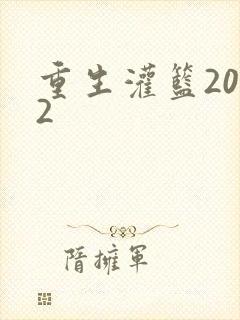 重生灌籃20
2
隋擁軍